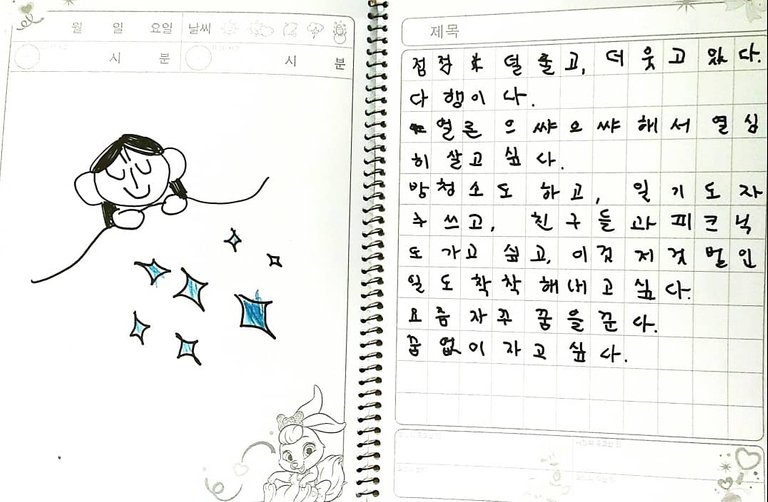 월 일 요일 날씨
시 분 시 분
제목
점점 덜 졸고, 더 웃고 있다.
다행이다.
얼른 으쌰으쌰해서 열심
히 살고 싶다.
방청소도 하고, 일기도 자
주 쓰고, 친구들과 피크닉
도 가고 싶고, 이것저것 벌인
일도 착착 해내고 싶다.
요즘 자꾸 꿈을 꾼다.
꿈 없이 자고 싶다.